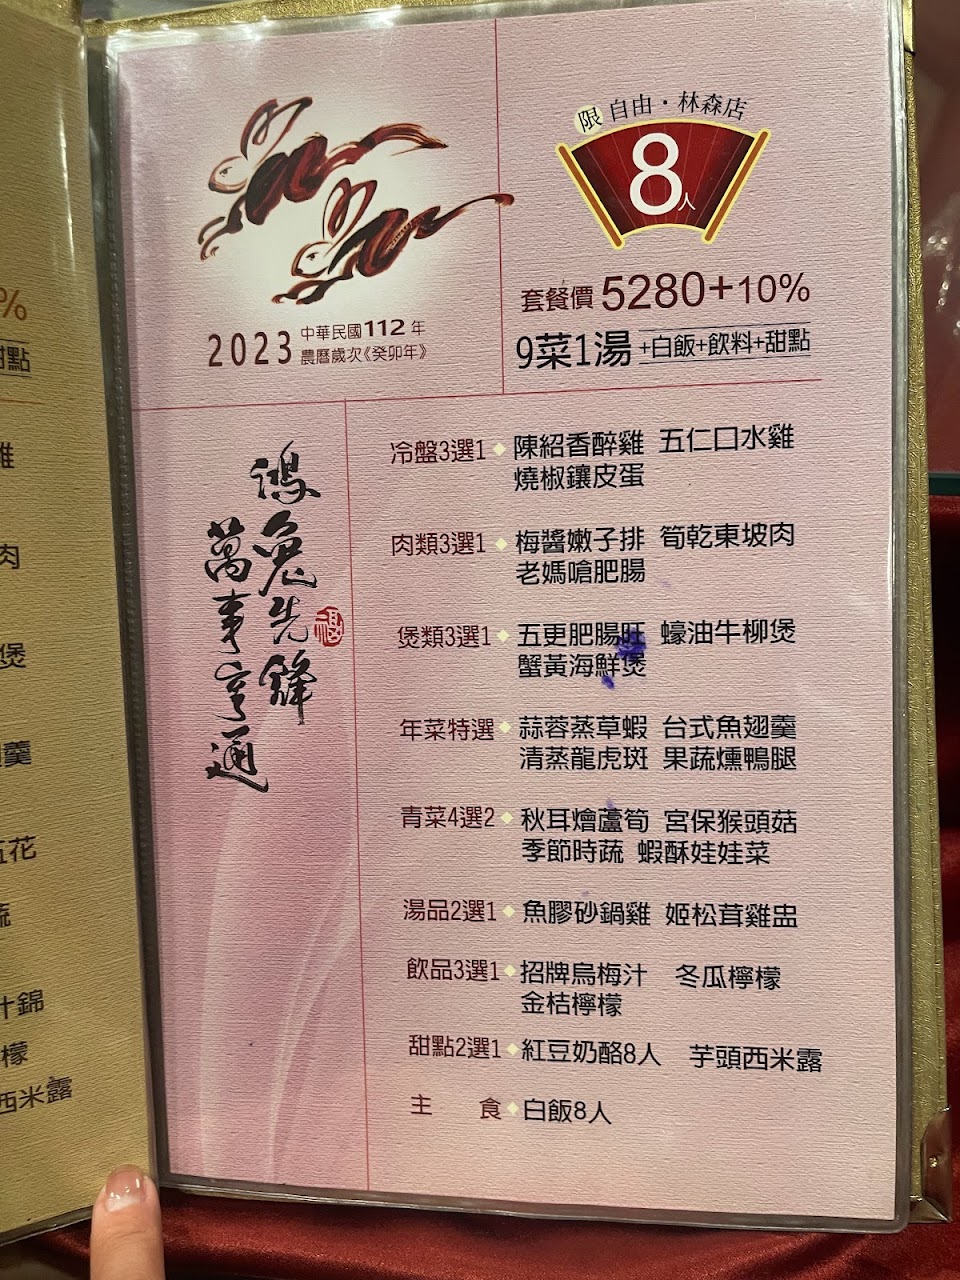 %
甜點
雞
肉
煲
羹
五花
蔬
汁錦
檬
西米露
限 自由・林森店
8人
套餐價 5280+10%
9菜1湯 +白飯+飲料+甜點
2023 中華民國112年
農曆歲次《癸卯年》
鴻兔先鋒
萬事亨通
福
冷盤3選1 陳紹香醉雞 五仁口水雞
燒椒鑲皮蛋
肉類3選1 梅醬嫩子排 筍乾東坡肉
老媽嗆肥腸
煲類3選1 五更肥腸旺 蠔油牛柳煲
蟹黃海鮮煲
年菜特選 蒜蓉蒸草蝦 台式魚翅羹
清蒸龍虎斑 果蔬燻鴨腿
青菜4選2 秋耳燴蘆筍 宮保猴頭菇
季節時蔬 蝦酥娃娃菜
湯品2選1 魚膠砂鍋雞 姬松茸雞盅
飲品3選1 招牌烏梅汁 冬瓜檸檬
金桔檸檬
甜點2選1 紅豆奶酪8人 芋頭西米露
主食 白飯8人